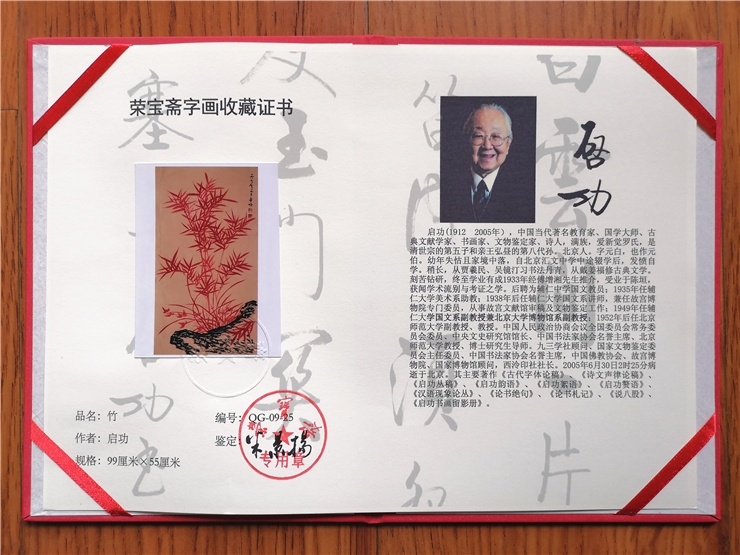 荣宝斋字画收藏证书
品名：竹
作者：启功
规格：99厘米×55厘米
编号：QG-09-25
鉴定：
专用章
启功
启功(1912 2005年），中国当代著名教育家、国学大师、古
典文献学家、书画家、文物鉴定家、诗人，满族，爱新觉罗氏，是
清世宗的第五子和亲王弘昼的第八代孙。北京人，字元白，也作元
伯，幼年失怙且家境中落，自北京汇文中学中途辍学后，发愤自
学。稍长，从贾羲民、吴镜汀习书法丹青，从戴姜福修古典文学。
刻苦钻研，终至学业有成1933年经傅增湘先生推介，受业于陈垣，
获闻学术流别与考证之学。后聘为辅仁中学国文教员；1935年任辅
仁大学美术系助教；1938年后任辅仁大学国文系讲师，兼任故宫博
物院专门委员，从事故宫文献馆审稿及文物鉴定工作；1949年任辅
仁大学国文系副教授兼北京大学博物馆系副教授；1952年后任北京
师范大学副教授、教授。中国人民政治协商会议全国委员会常务委
员会委员、中央文史研究馆馆长、中国书法家协会名誉主席、北京
师范大学教授、博士研究生导师，九三学社顾问、国家文物鉴定委
员会主任委员、中国书法家协会名誉主席，中国佛教协会、故宫博
物院、国家博物馆顾问，西泠印社社长。2005年6月30日2时25分病
逝于北京，其主要著作《古代字体论稿》、《诗文声律论稿》、
《启功丛稿》、《启功韵语》、《启功絮语》、《启功赘语》、
《汉语现象论丛》、《论书绝句》、《论书札记》、《说八股》、
《启功书画留影册》。